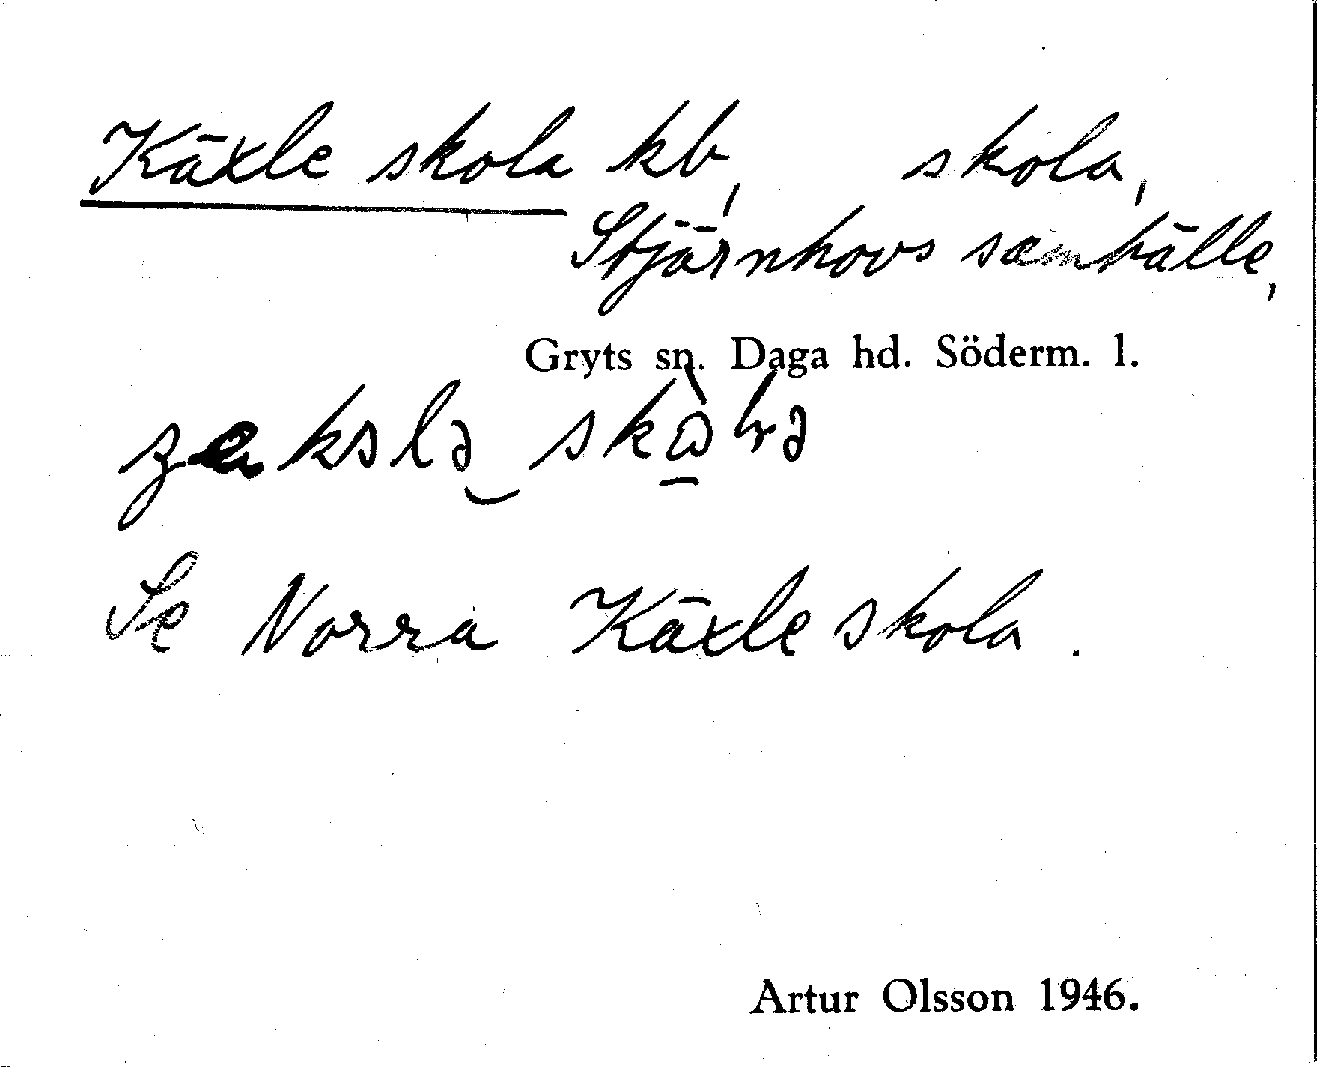 Käxle skola kb, skola,
Stjärnhovs samhälle,
Gryts sn. Daga hd. Söderm. l.
Se Norra Käxle skola.
Artur Olsson 1946.